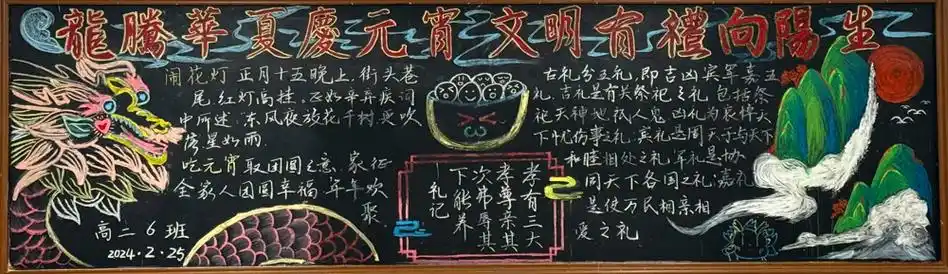 龍騰華夏慶元宵 文明有禮向陽生
闹花灯 正月十五晚上,街头巷
尾,红灯高挂。正如辛弃疾词
中所述:东风夜放花千树,更吹
落星如雨.
吃元宵 取团圆之意,象征
全家人团圆幸福,年年欢
聚
高二6班
2024.2.25
孝有三:大
孝尊亲,其
次弗辱,其
下能养
—礼记
古礼分五礼,即吉凶宾军嘉五
礼。吉礼是有关祭祀之礼,包括祭
祀天神地祇人鬼 凶礼为哀悼天
下忧伤事之礼。宾礼是周天子与天下
和睦相处之礼 军礼是协
同天下各国之礼 嘉礼
是使万民相亲相
爱之礼